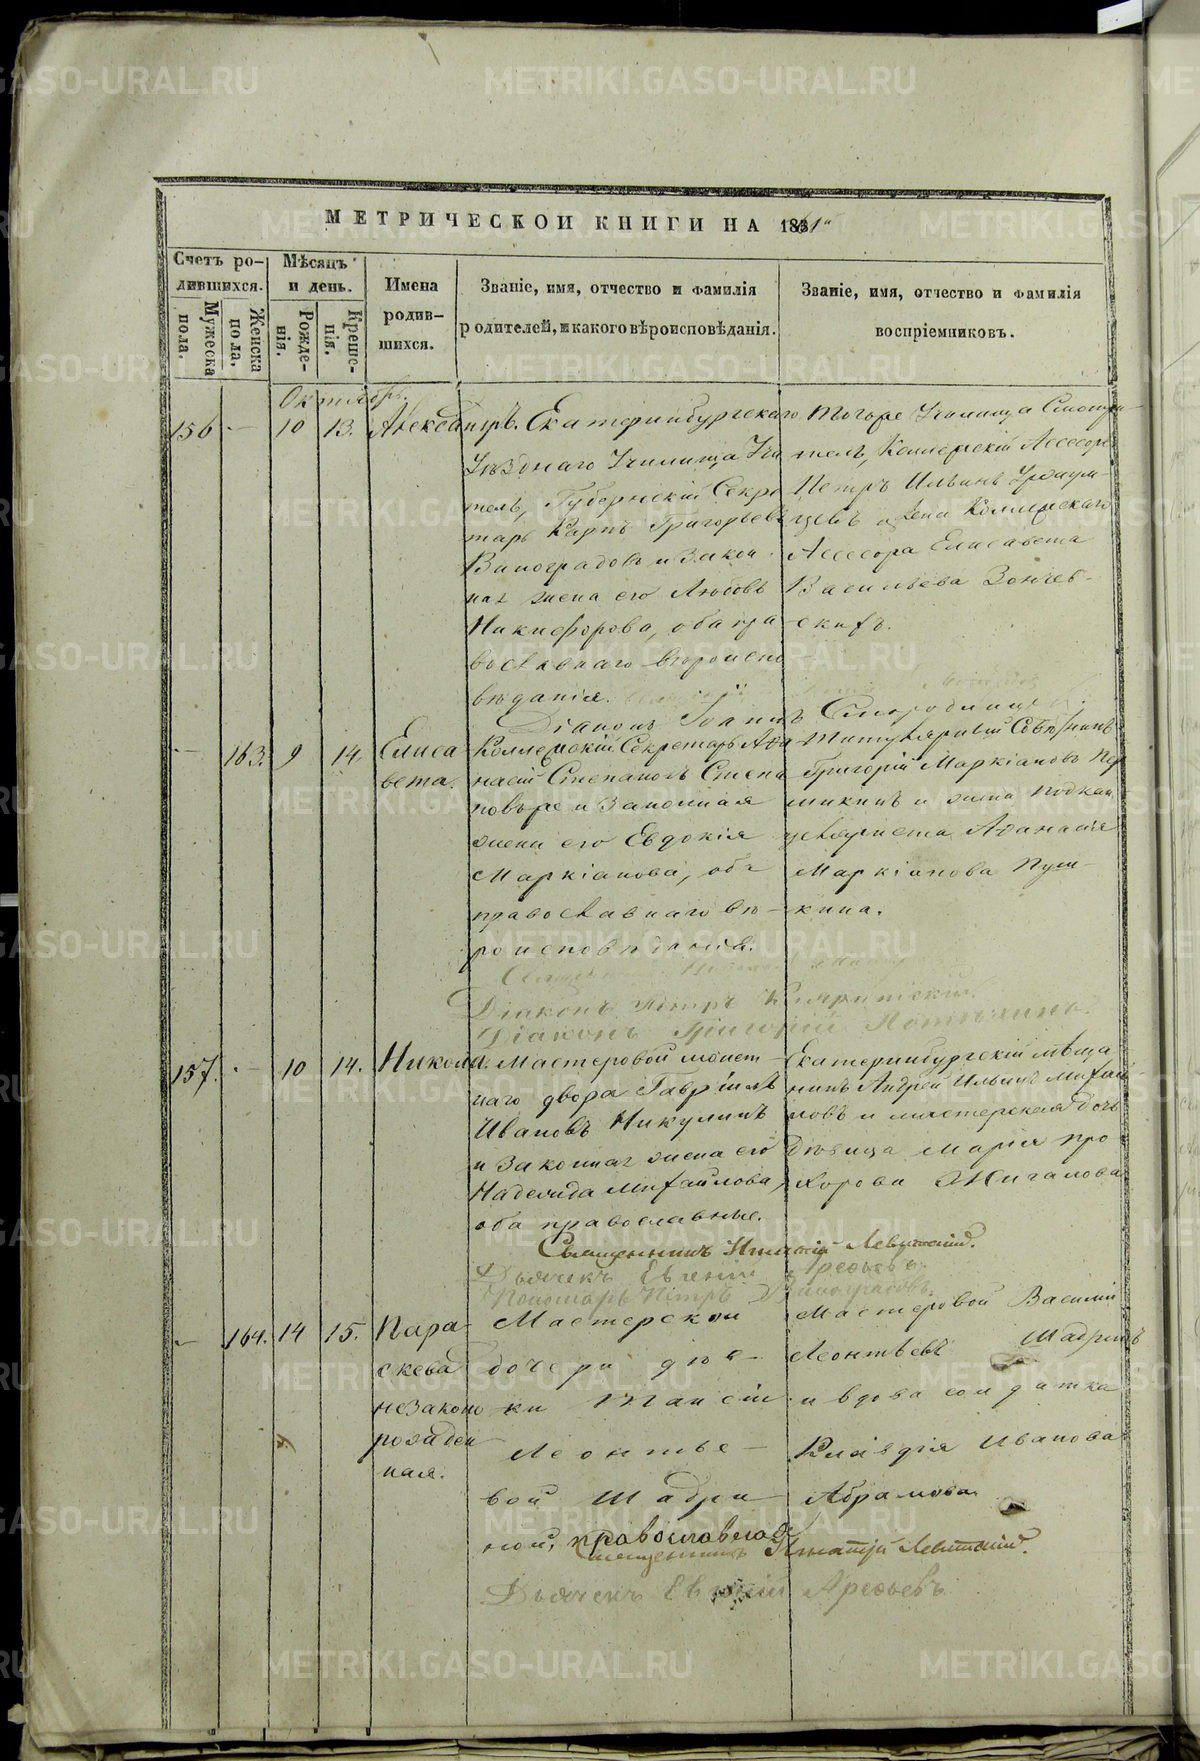 МЕТРИЧЕСКОЙ КНИГИ НА 1841
Счетъ родившихся.
Мѣсяцъ и день.
Имена родившихся.
Званіе, имя, отчество и фамилія родителей, и какого вѣроисповѣданія.
Званіе, имя, отчество и фамилія воспріемниковъ.
Мужеска пола.
Женска пола.
Рожденія.
Крещенія.
Октябрь.
156 - 10 13. Александръ.
Екатеринбургскаго
Уѣзднаго Училища Учи
тель, Губернскій Секре
тарь Карпъ Григорьевъ
Виноградовъ и закон
ная жена его Любовь
Никифорова, оба пра
вославнаго вѣроиспо
вѣданія.
Тогоже Училища Смотри-
тель, Коллежскій Ассесоръ
Петръ Ильинъ
и жена Коллежскаго
Ассесора Елисавета
Васильева
Діаконъ Іоаннъ
- 163. 9 14. Елиса
вета.
Коллежскій Секретарь Афа
насій Степановъ
и Законная
жена его Евдокія
Маркіанова, оба
православнаго вѣ-
роисповѣданія.
Титулярный Совѣтникъ
Григорій Маркіановъ
и жена Подкан
целяриста Афанасія
Маркіанова Пуш-
кина.
Діаконъ Петръ
Діаконъ Григорій
157. - 10 14. Николай.
Мастеровой монет-
наго двора Гавріилъ
Ивановъ Никулинъ
и Законная жена его
Надежда Михайлова,
оба православные.
Екатеринбургскій мѣща
нинъ Андрей Ильинъ Михай
ловъ и мастерская дочь
Дѣвица Марія Про
хорова Жигалова
Священникъ Игнатій Левитскій.
Дьячекъ Евгеній Арефьевъ.
Пономарь Петръ Виноградовъ.
- 164. 14 15. Пара
скева
незаконо
рожден
ная.
Мастерской
дочери дѣв-
ки Таисіи
Леонтье-
вой Шадри
ной, православной
Мастеровой Василій
Леонтьевъ Шадринъ
и вдова солдатка
Клавдія Иванова
Абрамова
Священникъ Игнатій Левитскій.
Дьячекъ Евгеній Арефьевъ
METRIKI.GASO-URAL.RU